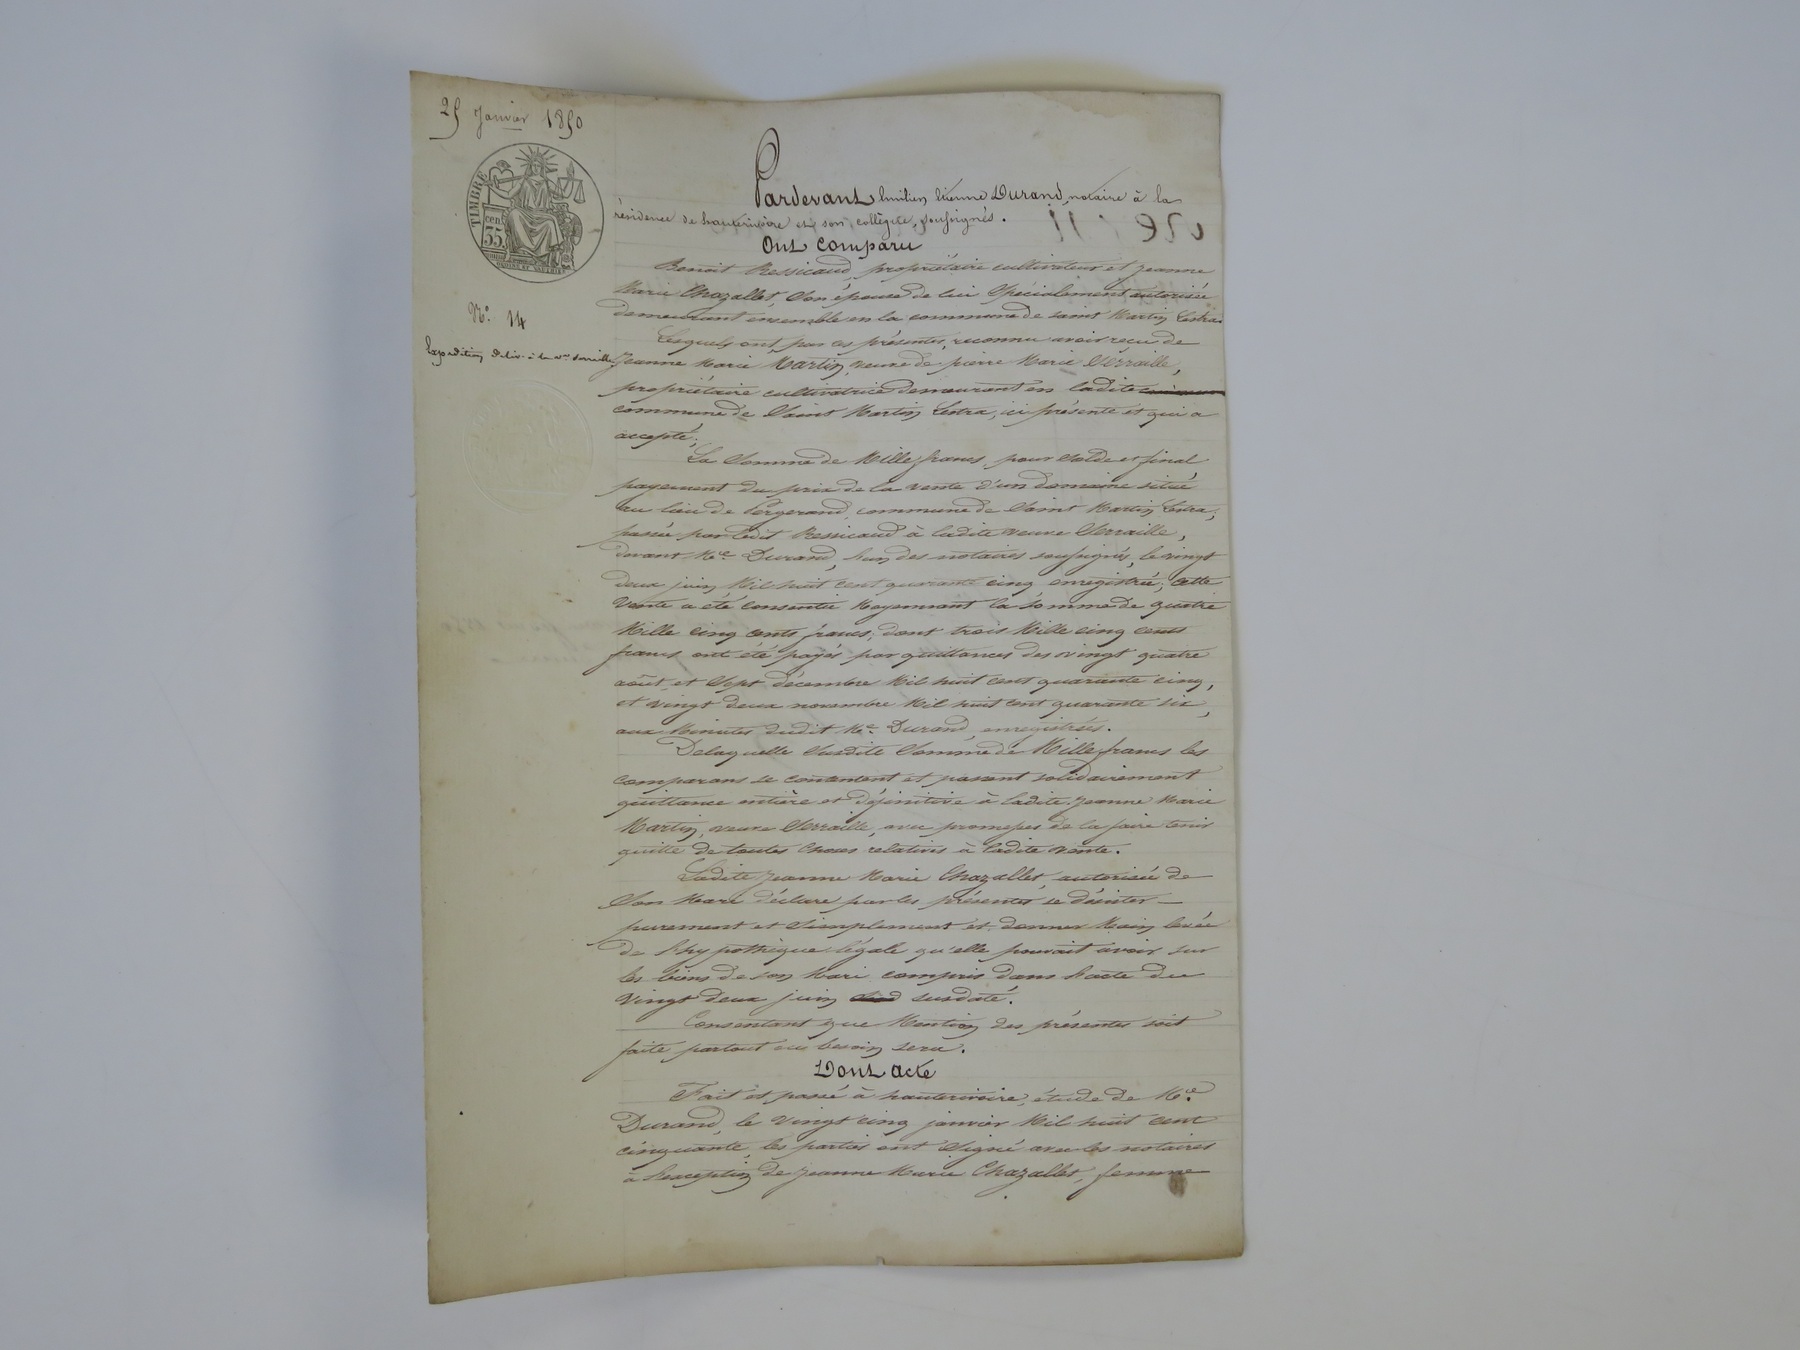 25 Janvier 1850
TIMBRE
cen
35
N.° 14
Expédition déliv. à la v.ve Serraille
Pardevant Etienne Durand, notaire à la
résidence de hauterivoire et son collègue, soussignés.
Ont comparu
Benoit Ressicaud, propriétaire cultivateur et jeanne
Marie Chazallet, Son épouse de lui Spécialement autorisée
demeurant ensemble en la commune de saint Martin Lestra.
Lesquels ont, par ces présentes, reconnu avoir reçu de
Jeanne Marie Martin, veuve de pierre Marie Serraille,
propriétaire cultivatrice demeurant en ladite
commune de Saint Martin Lestra, ici présente et qui a
accepté;
La Somme de Mille francs, pour Solde et final
payement du prix de la vente d'un domaine situé
au lieu de Pergerand, commune de Saint Martin Lestra;
passée par ledit Ressicaud à ladite veuve Serraille,
devant M.e Durand, l'un des notaires soussignés, le vingt
deux juin Mil huit cent quarante cinq enregistrée; cette
vente a été consentie Moyennant la somme de quatre
Mille cinq cents francs; dont trois Mille cinq cents
francs ont été payés par quittances des vingt quatre
août et Sept décembre Mil huit cent quarante cinq,
et vingt deux novembre Mil huit cent quarante six,
aux Minutes dudit M.e Durand, enregistrées.
Delaquelle Susdite Somme de Mille francs les
comparans se contentent et passent solidairement
quittance entière et définitive à ladite jeanne Marie
Martin, veuve Serraille, avec promesses de la faire tenir
quitte de toutes choses relatives à ladite vente.
Ladite Jeanne Marie Chazallet, autorisée de
Son Mari déclare par les présentes se désister
purement et Simplement et donner Main levée
de l'hypothèque légale qu'elle pouvait avoir sur
les biens de son Mari compris dans l'acte du
vingt deux juin susdaté.
Consentant que Mention des présentes soit
faite partout où besoin sera.
Dont acte
Fait et passé à hauterivoire, étude de M.e
Durand, le vingt cinq janvier Mil huit cent
cinquante, les parties ont Signé avec les notaires
à l'exception de Jeanne Marie Chazallet, femme